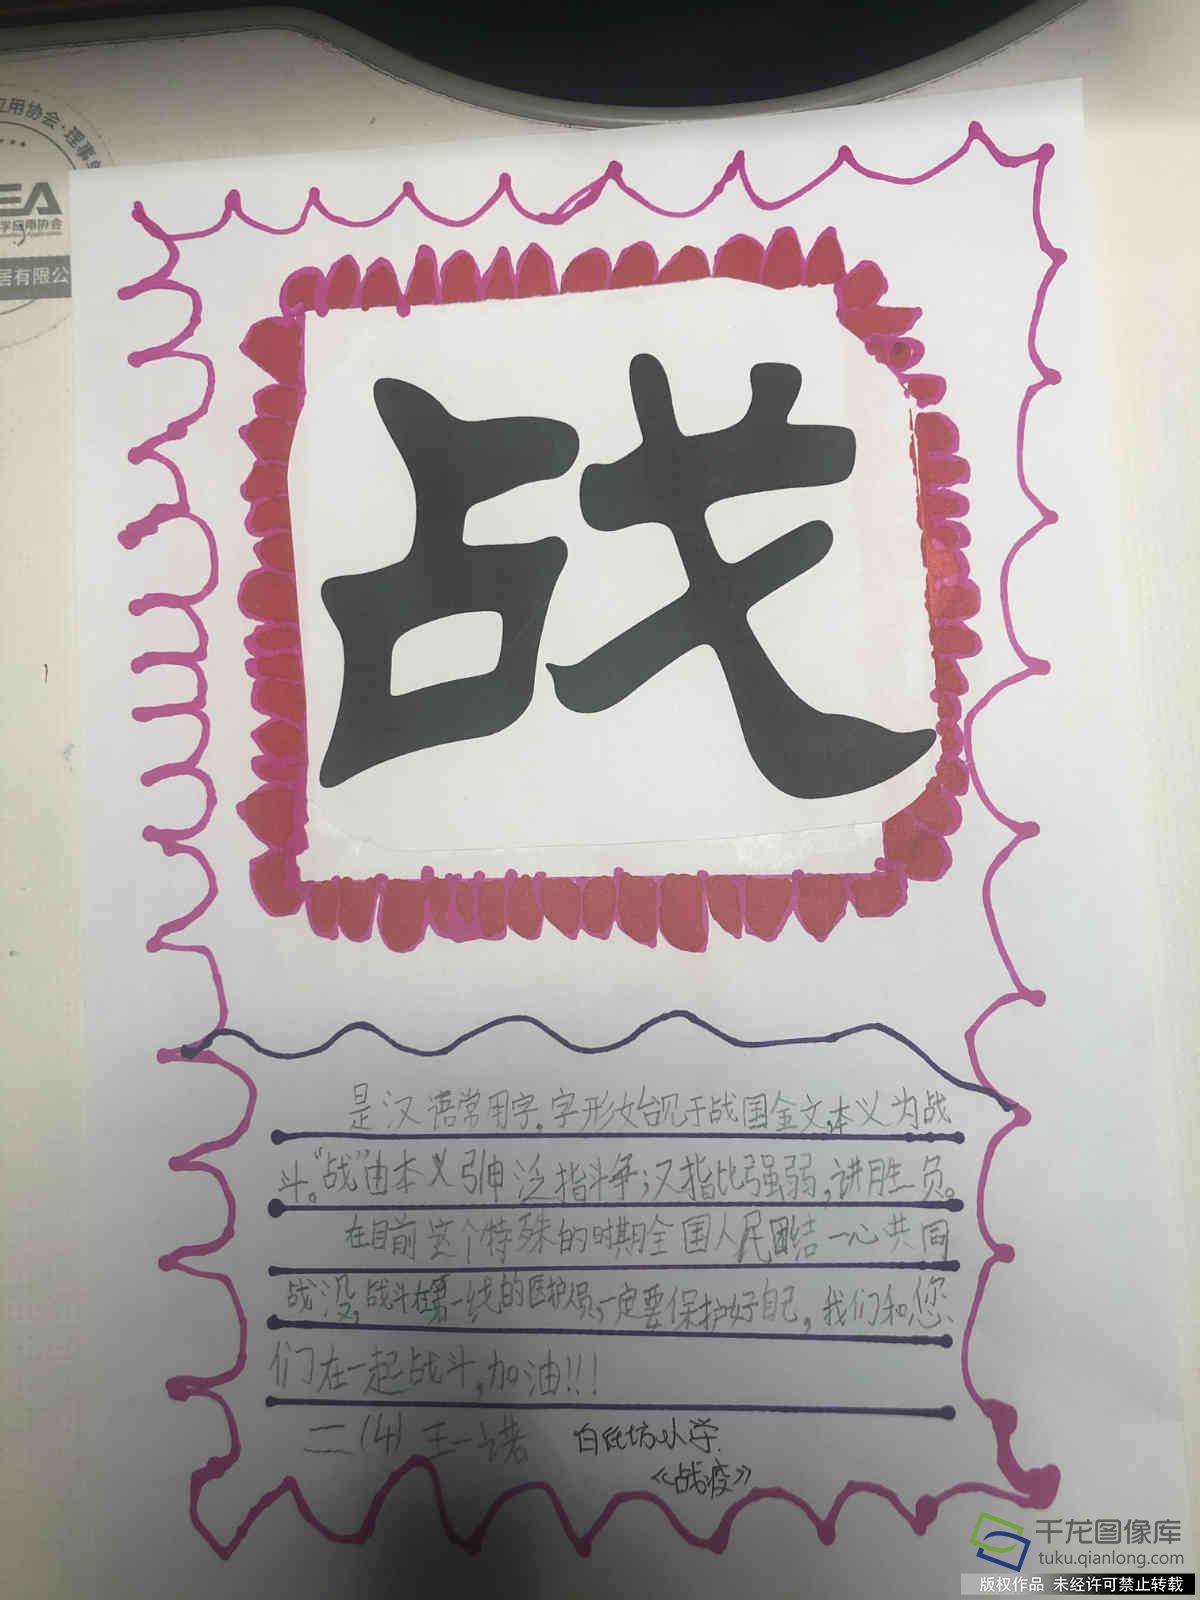 应用协会·理事单
EA
学应用协会
居有限公
战
是汉语常用字,字形始见于战国金文,本义为战
斗。“战”由本义引申泛指斗争;又指比强弱,讲胜负。
在目前这个特殊的时期全国人民团结一心共同
战没,战斗在第一线的医护人员,一定要保护好自己,我们和您
们在一起战斗,加油!!!
二(4) 王一诺 白纸坊小学
《战疫》
千龙图像库
tuku.qianlong.com
版权作品 未经许可禁止转载